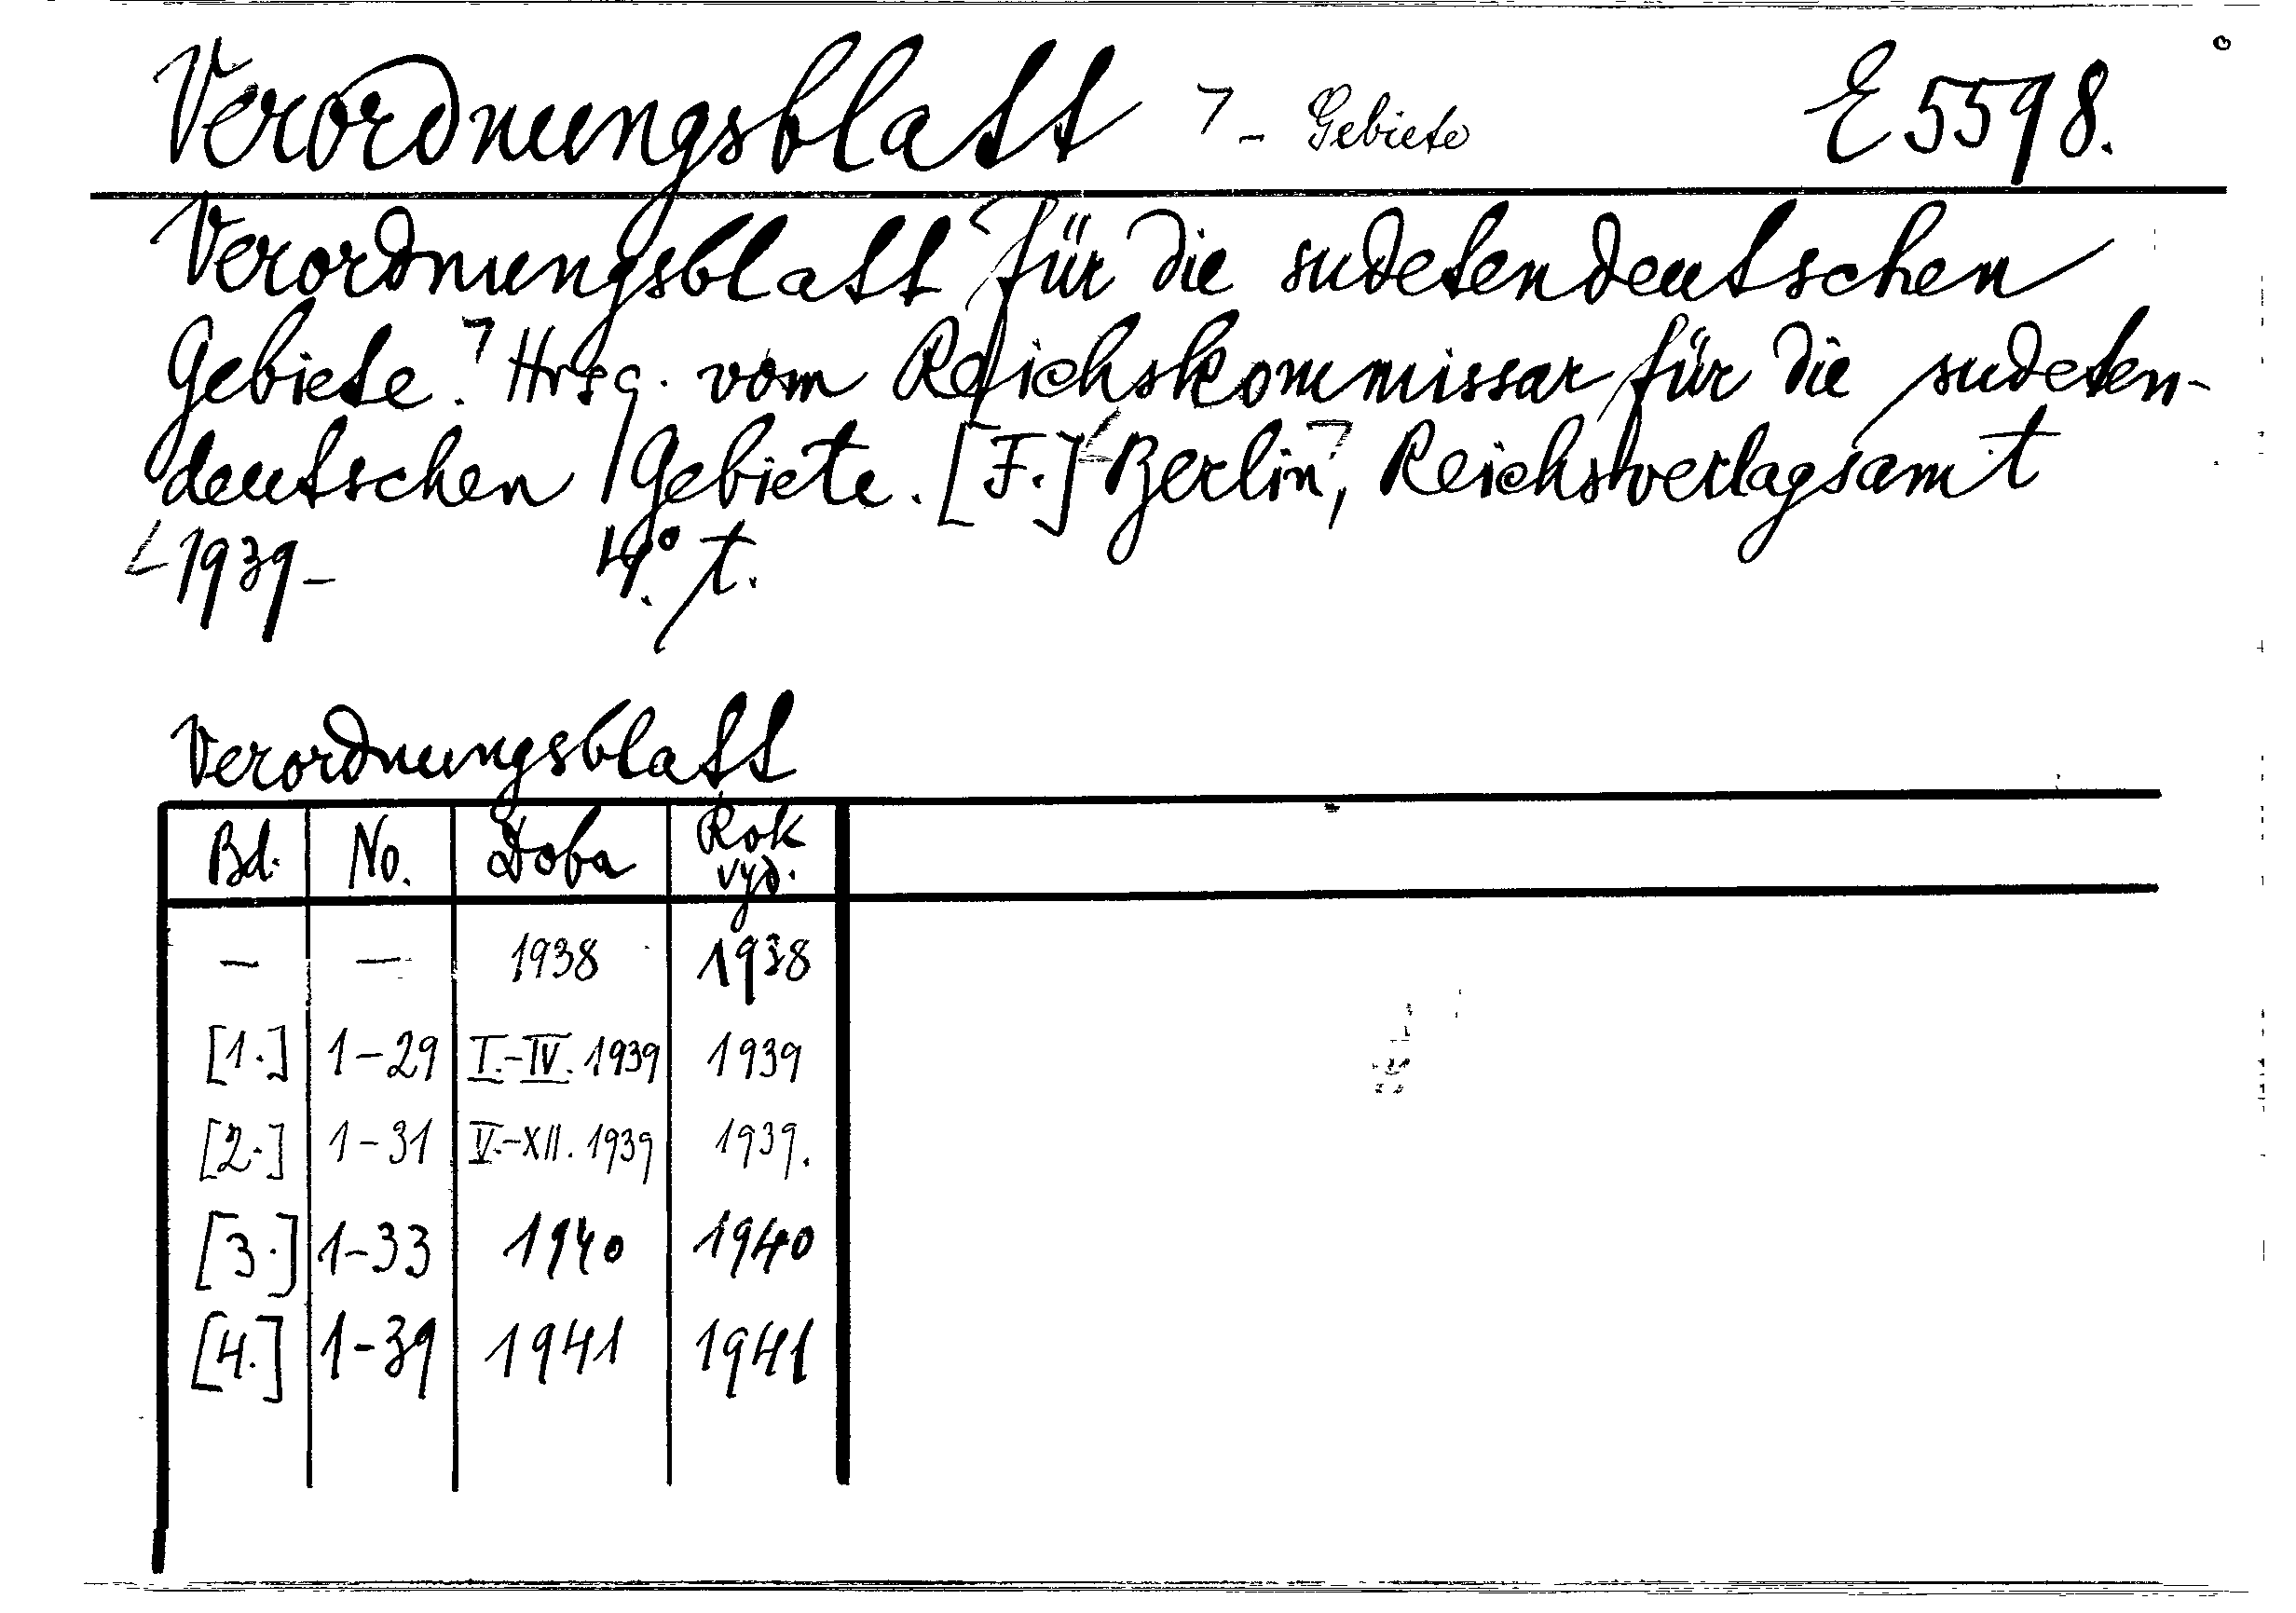 Verordnungsblatt ⌝ - Gebiete E 5598.
Verordnungsblatt für die sudetendeutschen
Gebiete.⌝ Hrsg. vom Reichskommissar für die sudeten-
deutschen Gebiete. [F.] Berlin⌝, Reichsverlagsamt
1939- 4°. t.
Verordnungsblatt
Bd. No. Doba Rok vyd.
— — 1938 1938
[1.] 1-29 I.-IV. 1939 1939
[2.] 1-31 V.-XII. 1939 1939.
[3.] 1-33 1940 1940
[4.] 1-39 1941 1941